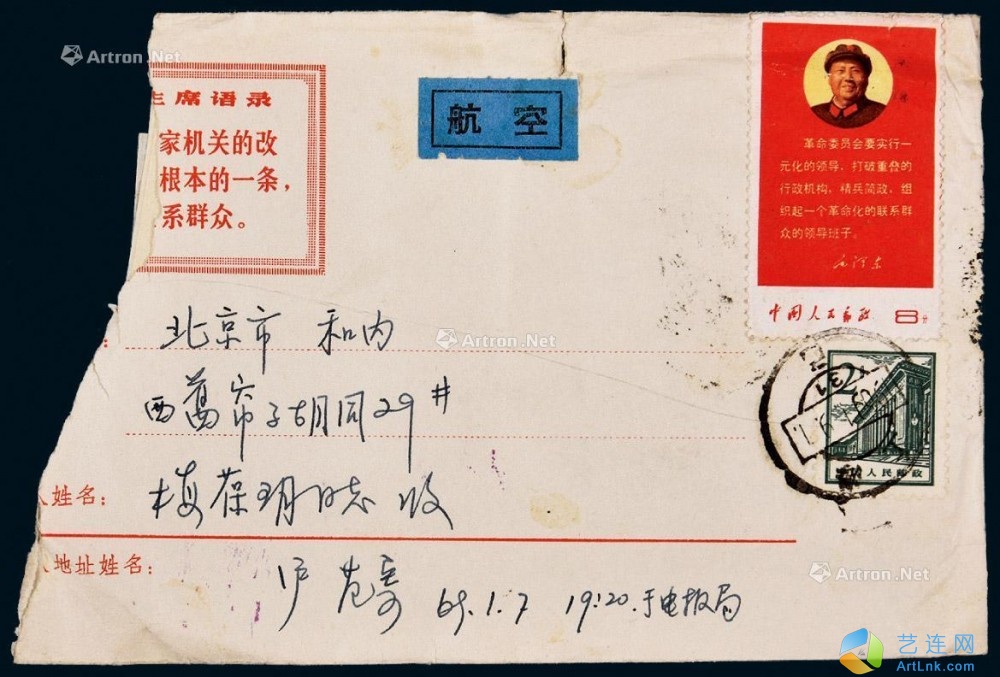 Artron.Net
主席语录
家机关的改
根本的一条，
系群众。
航空
革命委员会要实行一
元化的领导，打破重叠的
行政机构，精兵简政，组
织起一个革命化的联系群
众的领导班子。
毛泽东
中国人民邮政 8分
中国人民邮政
北京市 和内
Artron.Net
西旧帘子胡同29#
姓名：
梅葆玥同志收
地址姓名：
沪 69.1.7 19:20.于电报局
Artron.Net
艺连网
ArtLnk.com